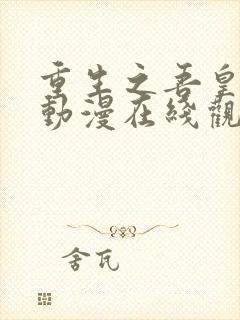 重生之吾皇
動漫在綫觀
舍瓦